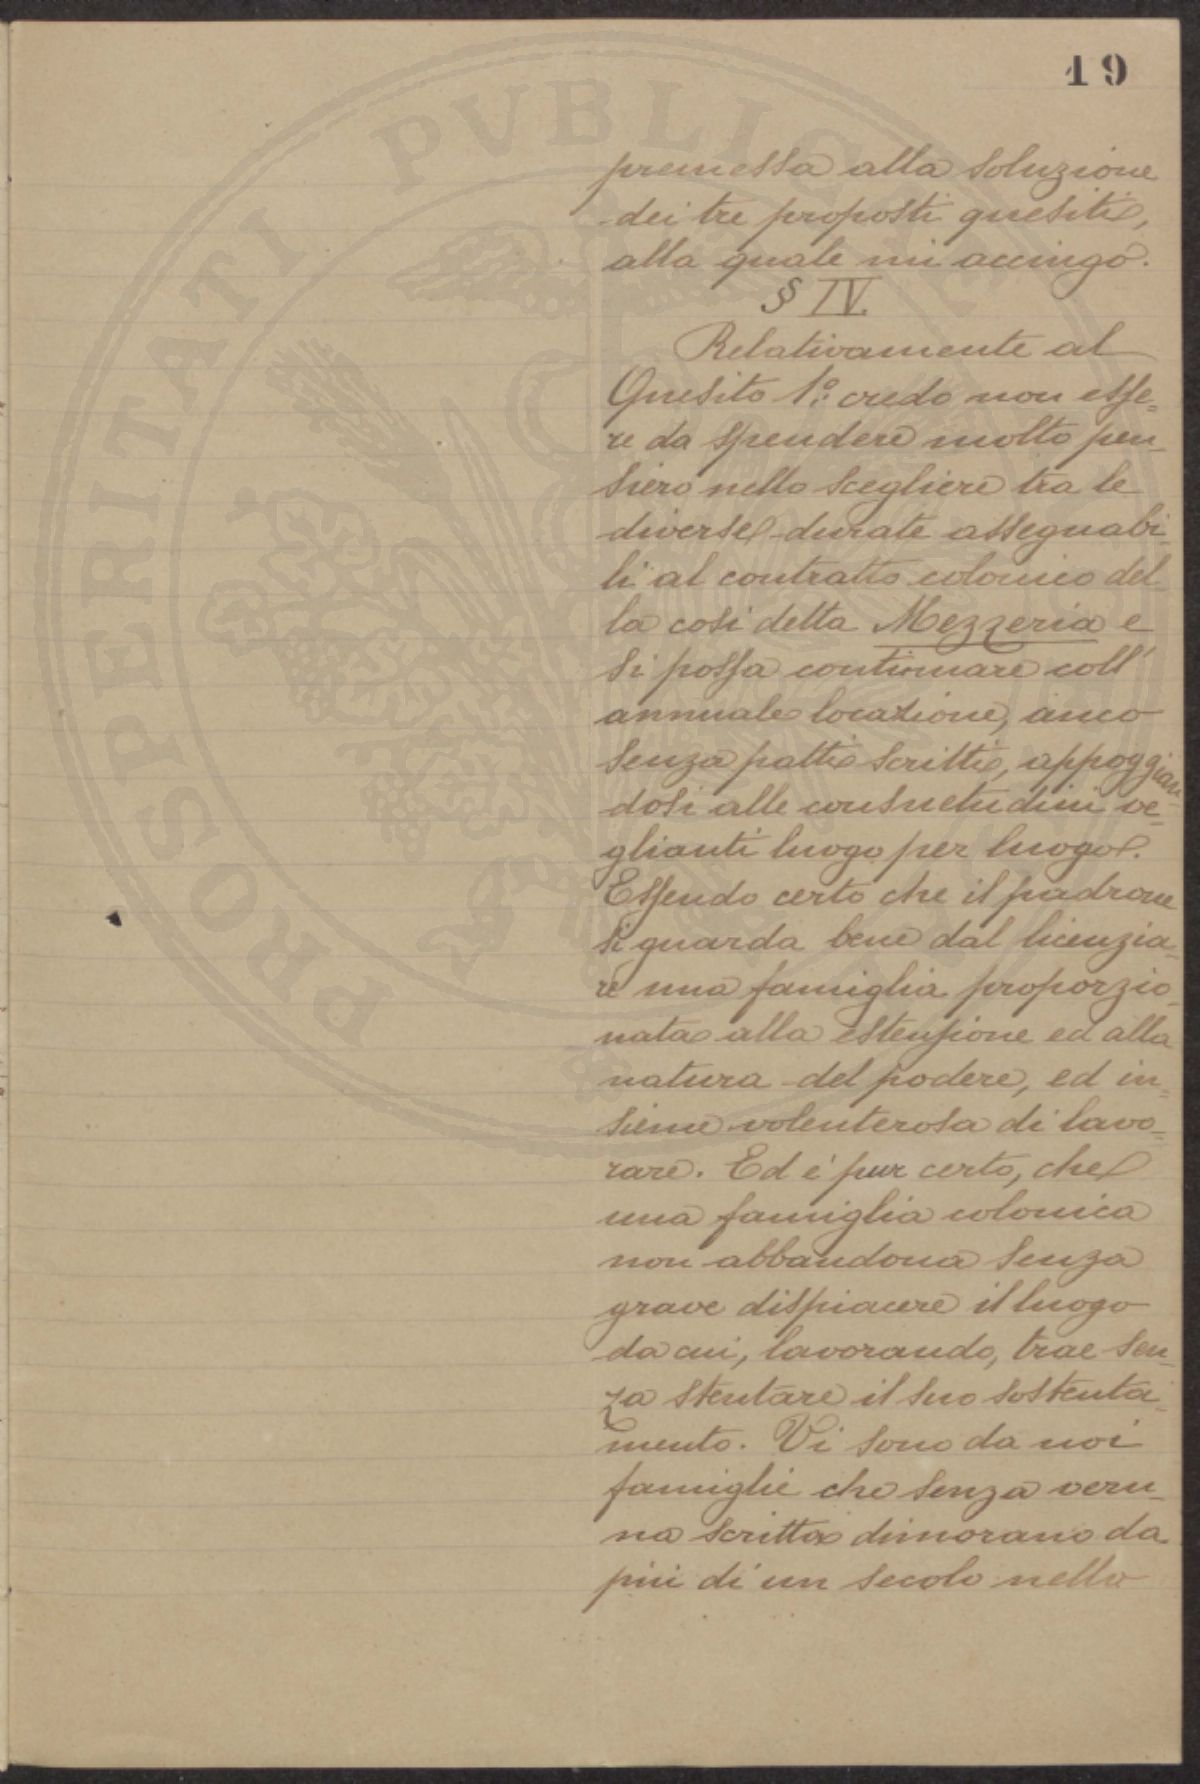 19
premessa alla soluzione
dei tre proposti quesiti,
alla quale mi accingo.
§ IV.
Relativamente al
Quesito 1.º credo non esse=
re da spendere molto pen_
siero nello scegliere tra le
diverse durate assegnabi_
li al contratto colonico del_
la così detta Mezzeria e
si possa continuare coll'
annuale locazione, anco
senza patti scritti, appoggian_
dosi alle consuetudini ve=
glianti luogo per luogo.
Essendo certo che il padrone
si guarda bene dal licenzia_
re una famiglia proporzio_
nata alla estensione ed alla
natura del podere, ed in=
sieme volenterosa di lavo=
rare. Ed è pur certo, che
una famiglia colonica
non abbandona senza
grave dispiacere il luogo
da cui, lavorando, trae sen_
za stentare il suo sostenta_
mento. Vi sono da noi
famiglie che senza veru_
na scritta dimorano da
più di un secolo nello
PROSPERITATI PVBLICAE